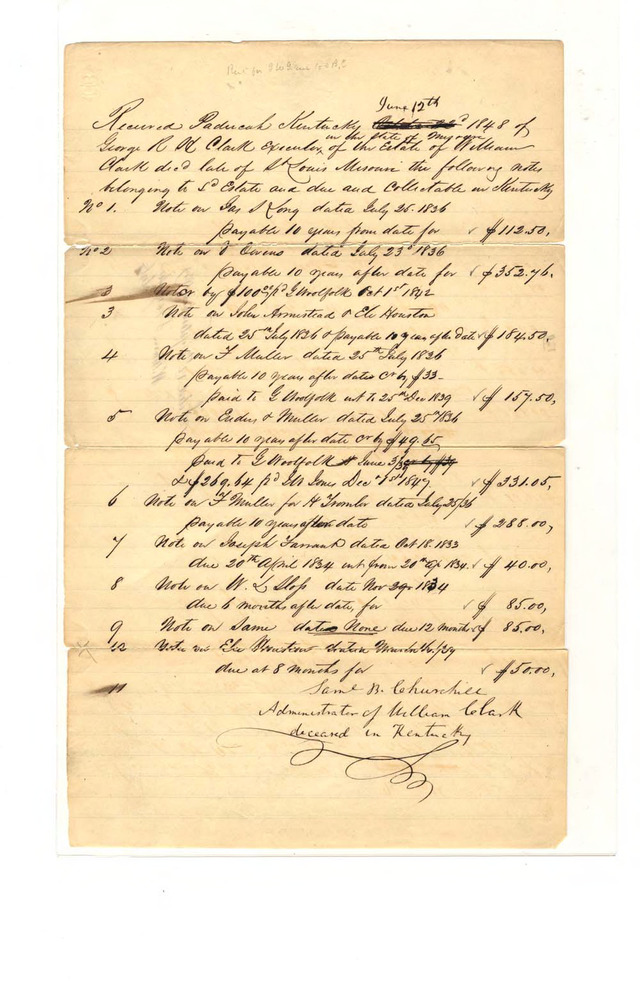 June 12th
Received Paducah Kentucky 1848 of
in the State of Missouri
George R H Clark Executor of the Estate of William
Clark decd late of St Louis Missouri the following notes
belonging to Sd Estate and due and Collectable in Kentucky
No 1. Note on Jas S Long dated July 25. 1836
payable 10 years from date for $112.50,
No 2 Note on J Owens dated July 23d 1836
payable 10 years after date for $352.76,
by $100 pd G Woolfolk Oct 1st 1842
3 Note on John Armistead & Eli Houston
dated 25th July 1836 & payable 10 years after date $184.50,
4 Note on F Muller dated 25th July 1836
payable 10 years after date Cr by $33—
paid to G Woolfolk int to 25th Dec 1839 $157.50,
5 Note on Enders & Muller dated July 25th 1836
payable 10 years after date Cr by $49.65
paid to G Woolfolk June 3/39
& $269.64 pd Jones Decr 1st 1847. $331.05,
6 Note on F Muller for H dated July 25/36
payable 10 years after date $288.00,
7 Note on Joseph Farrant dated Oct 18. 1833
due 20th April 1834 int from 20th Ap 1834. $40.00,
8 Note on W. L Sloss date Nov 1834
due 6 months after date, for $85.00,
9 Note on Same date None due 12 months $85.00,
Note on Eli Houston dated March
due at 8 months for $50.00,
11 Saml B. Churchill
Administrator of William Clark
deceased in Kentucky